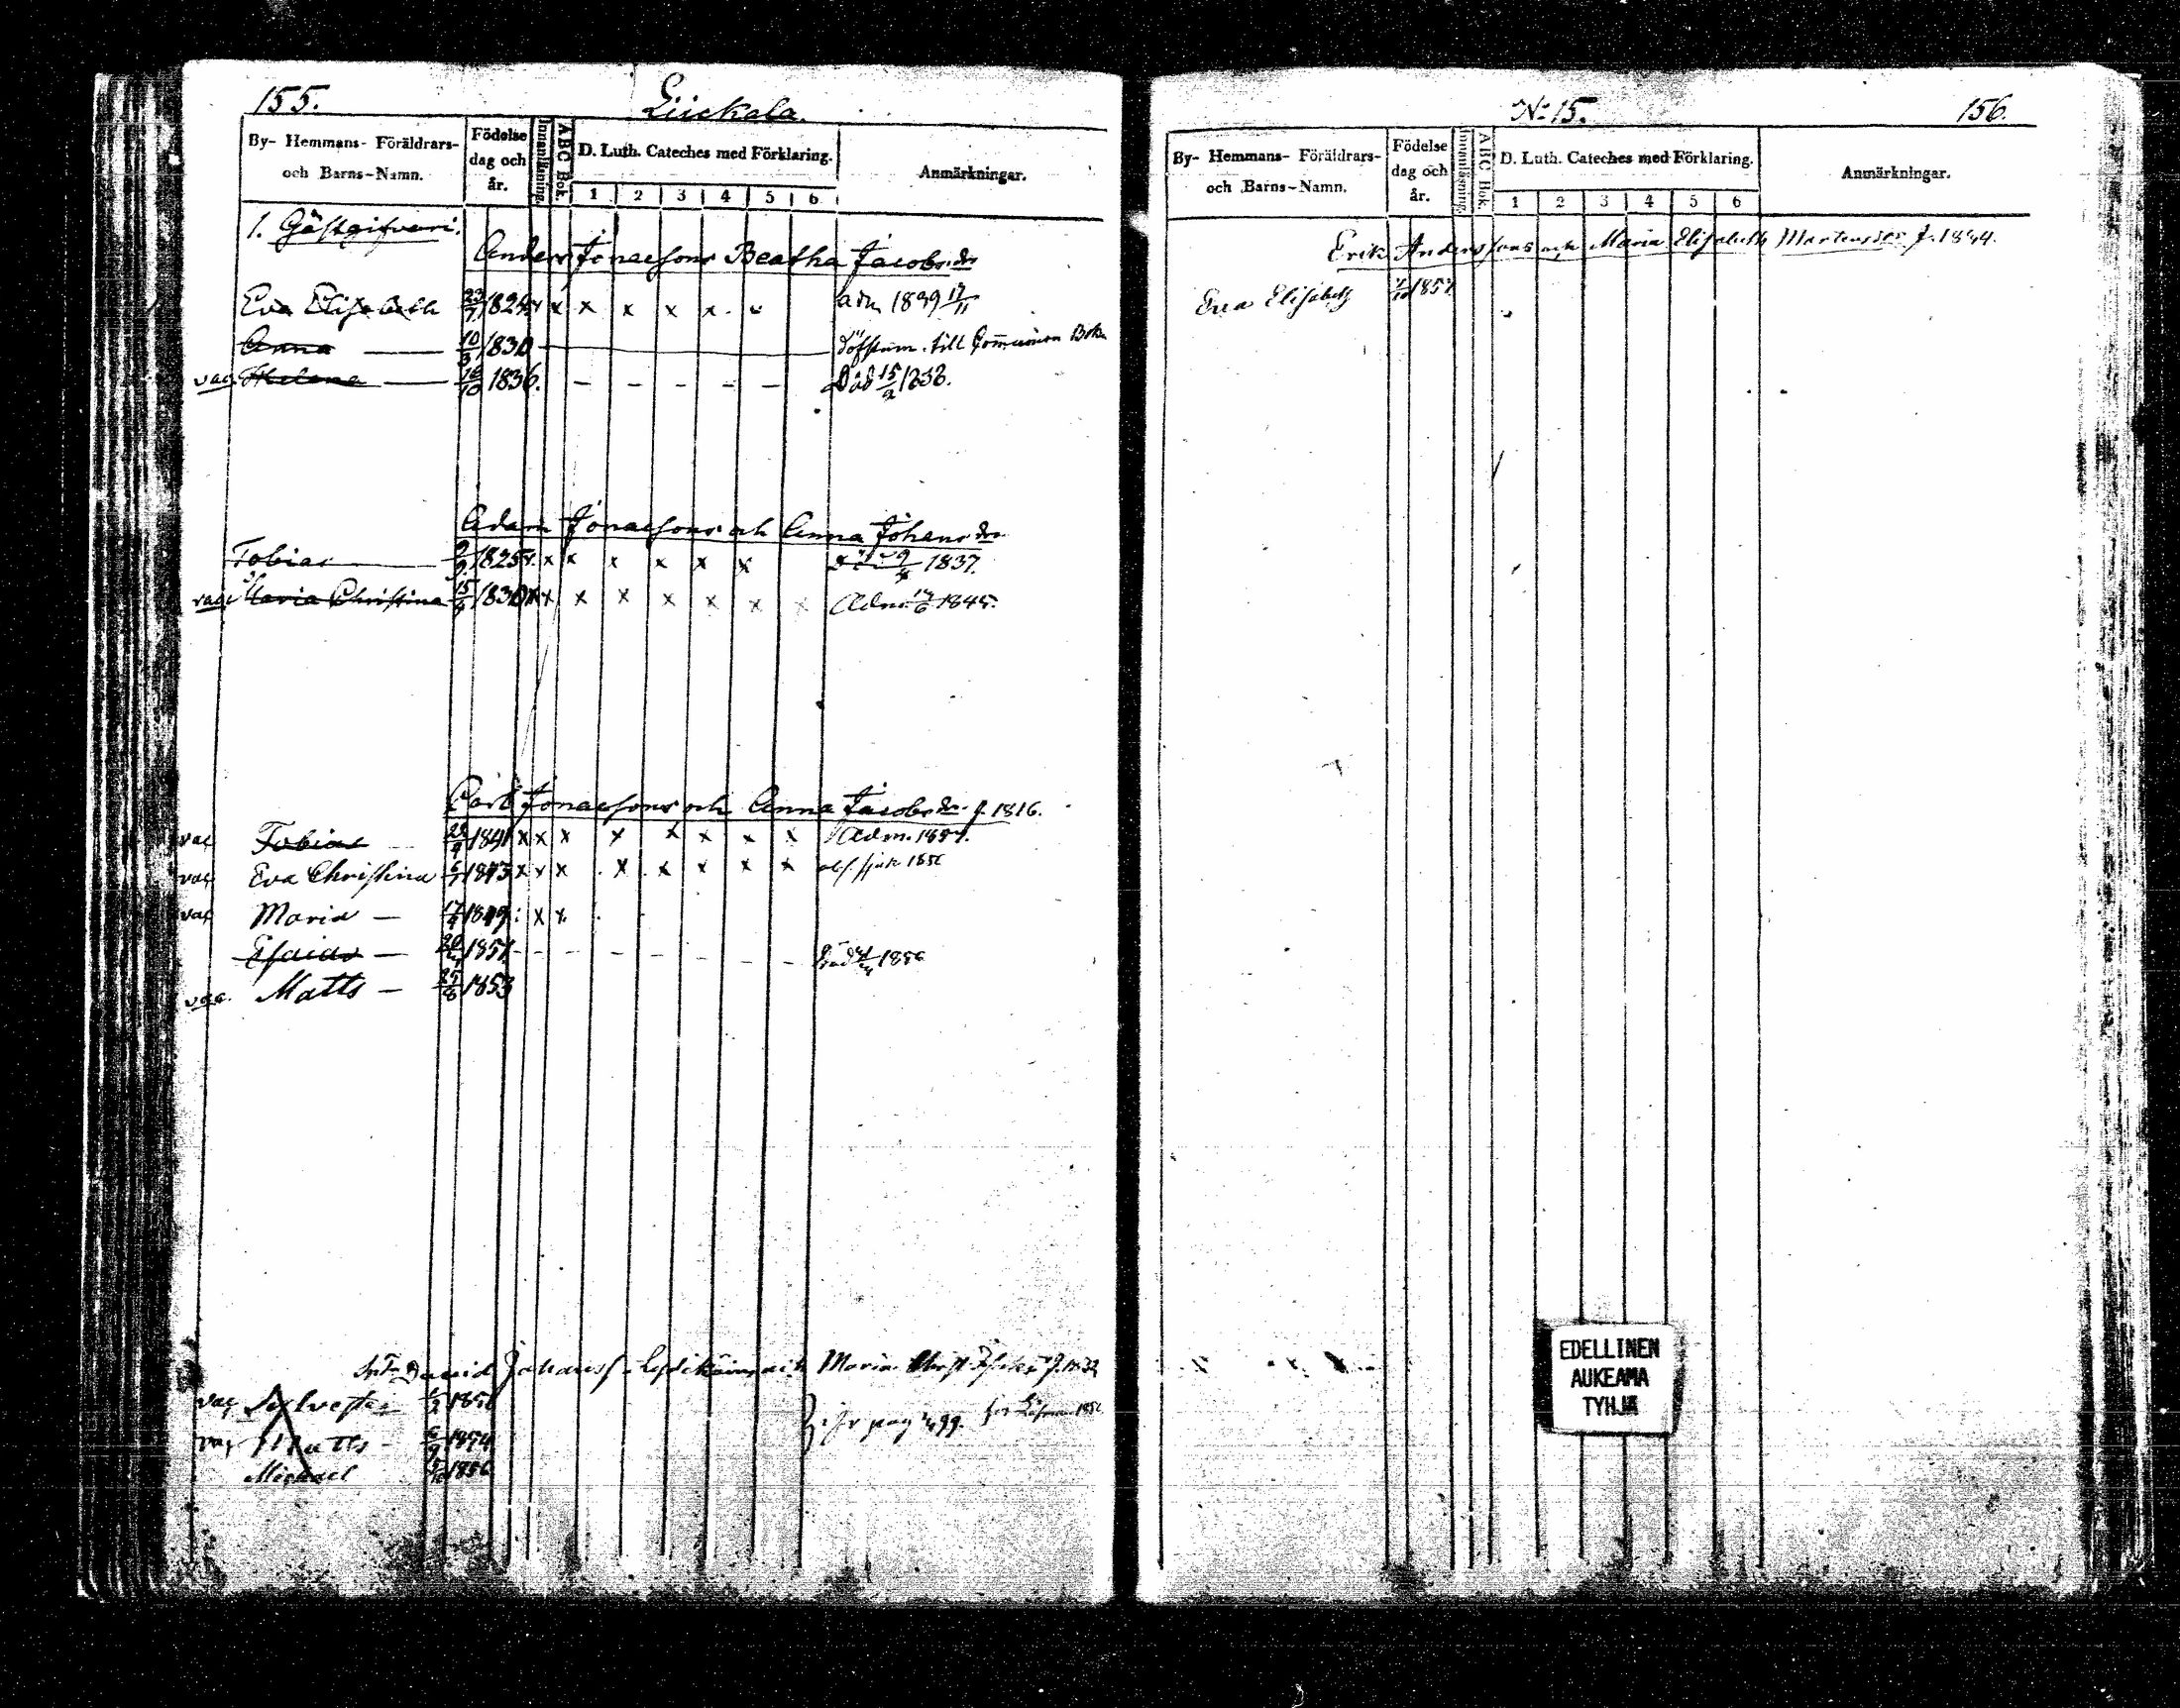 155.
Liickala.
By- Hemmans- Föräldrars- och Barns-Namn.
Födelse dag och år.
Innanläsning.
ABC Bok.
D. Luth. Cateches med Förklaring.
1 2 3 4 5 6
Anmärkningar.
1. Gästgifveri.
Anders Jonaesons Beatha Jacobsdr
Eva Elisabeth 23/7 1824 x x x x x x adm 1839 17/11
Anna 10/3 1830 till Communion Bok
vac. Helena 16/10 1836. – – – – – – Död 15/2 1838.
Adam Jonaesons och Anna Johansdr
Tobias 1825 x x x x x x 1837.
vac Maria Christina 15/ 1830 x x x x x x x x Adm. 14/6 1845.
Carl Jonaesons och Anna Jacobsdr f. 1816.
vac Tobias 1841 x x x x x x x x Adm. 1857.
vac Eva Christina 1843 x x x x x x x x 1856
vac Maria – 17/ 1849 x x
Esaias – 1851 – – – – – – 1856
vac. Matts – 25/8 1853
David Johanss. och Maria
vac Sylvester
vac Matts 1854
Michael 1856
No 15.
156.
By- Hemmans- Föräldrars- och Barns-Namn.
Födelse dag och år.
Innanläsning.
ABC Bok.
D. Luth. Cateches med Förklaring.
1 2 3 4 5 6
Anmärkningar.
Erik Anderssons och Maria Elisabeth Martensdr f. 1834.
Eva Elisabeth 1857
EDELLINEN
AUKEAMA
TYHJÄ